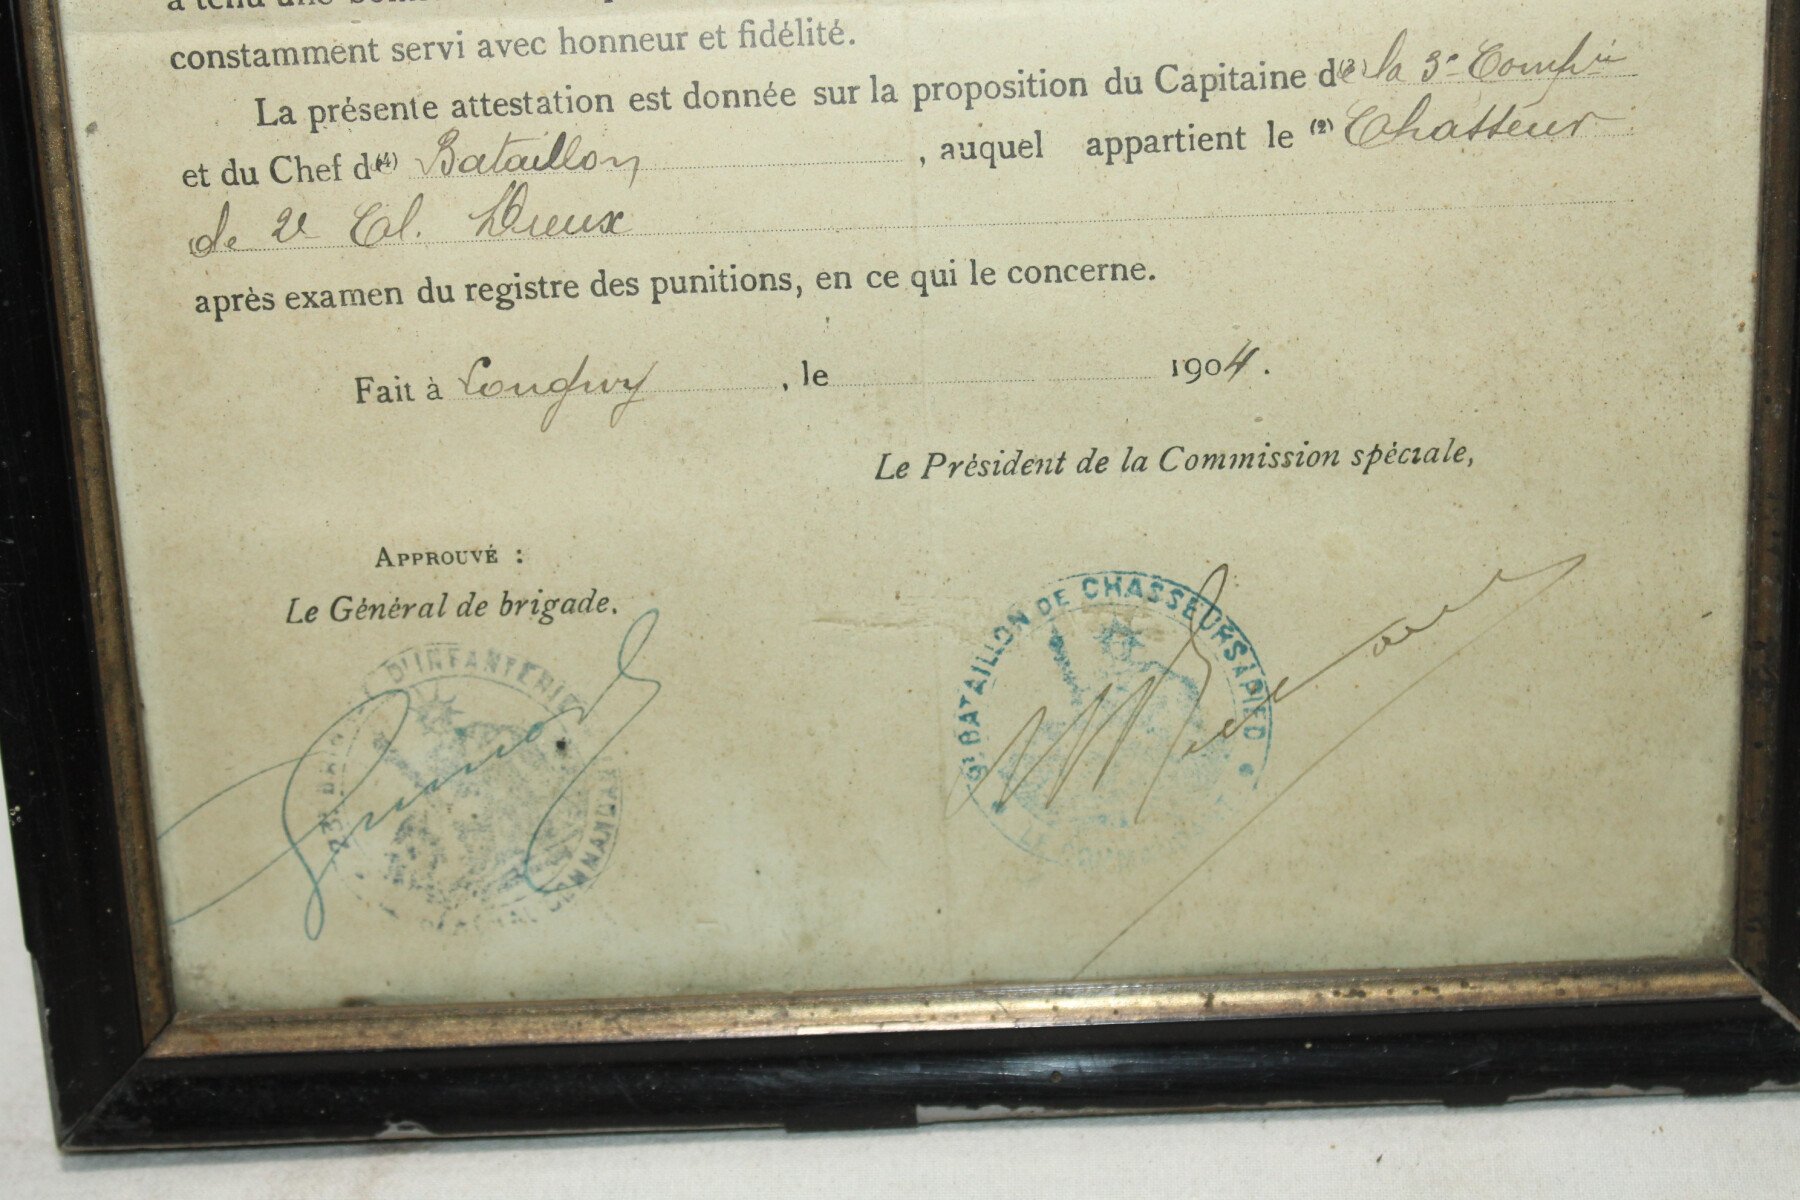 a tenu une
constamment servi avec honneur et fidélité.
La présente attestation est donnée sur la proposition du Capitaine de (3) la 3e Compie
et du Chef d(4) Bataillon, auquel appartient le (2) Chasseur
de 2e Cl. Dieux
après examen du registre des punitions, en ce qui le concerne.
Fait à Longwy, le 1904.
Le Président de la Commission spéciale,
APPROUVÉ :
Le Général de brigade.
23e D'INFANTERIE COMMANDANT
9e BATAILLON DE CHASSEURS À PIED
LE